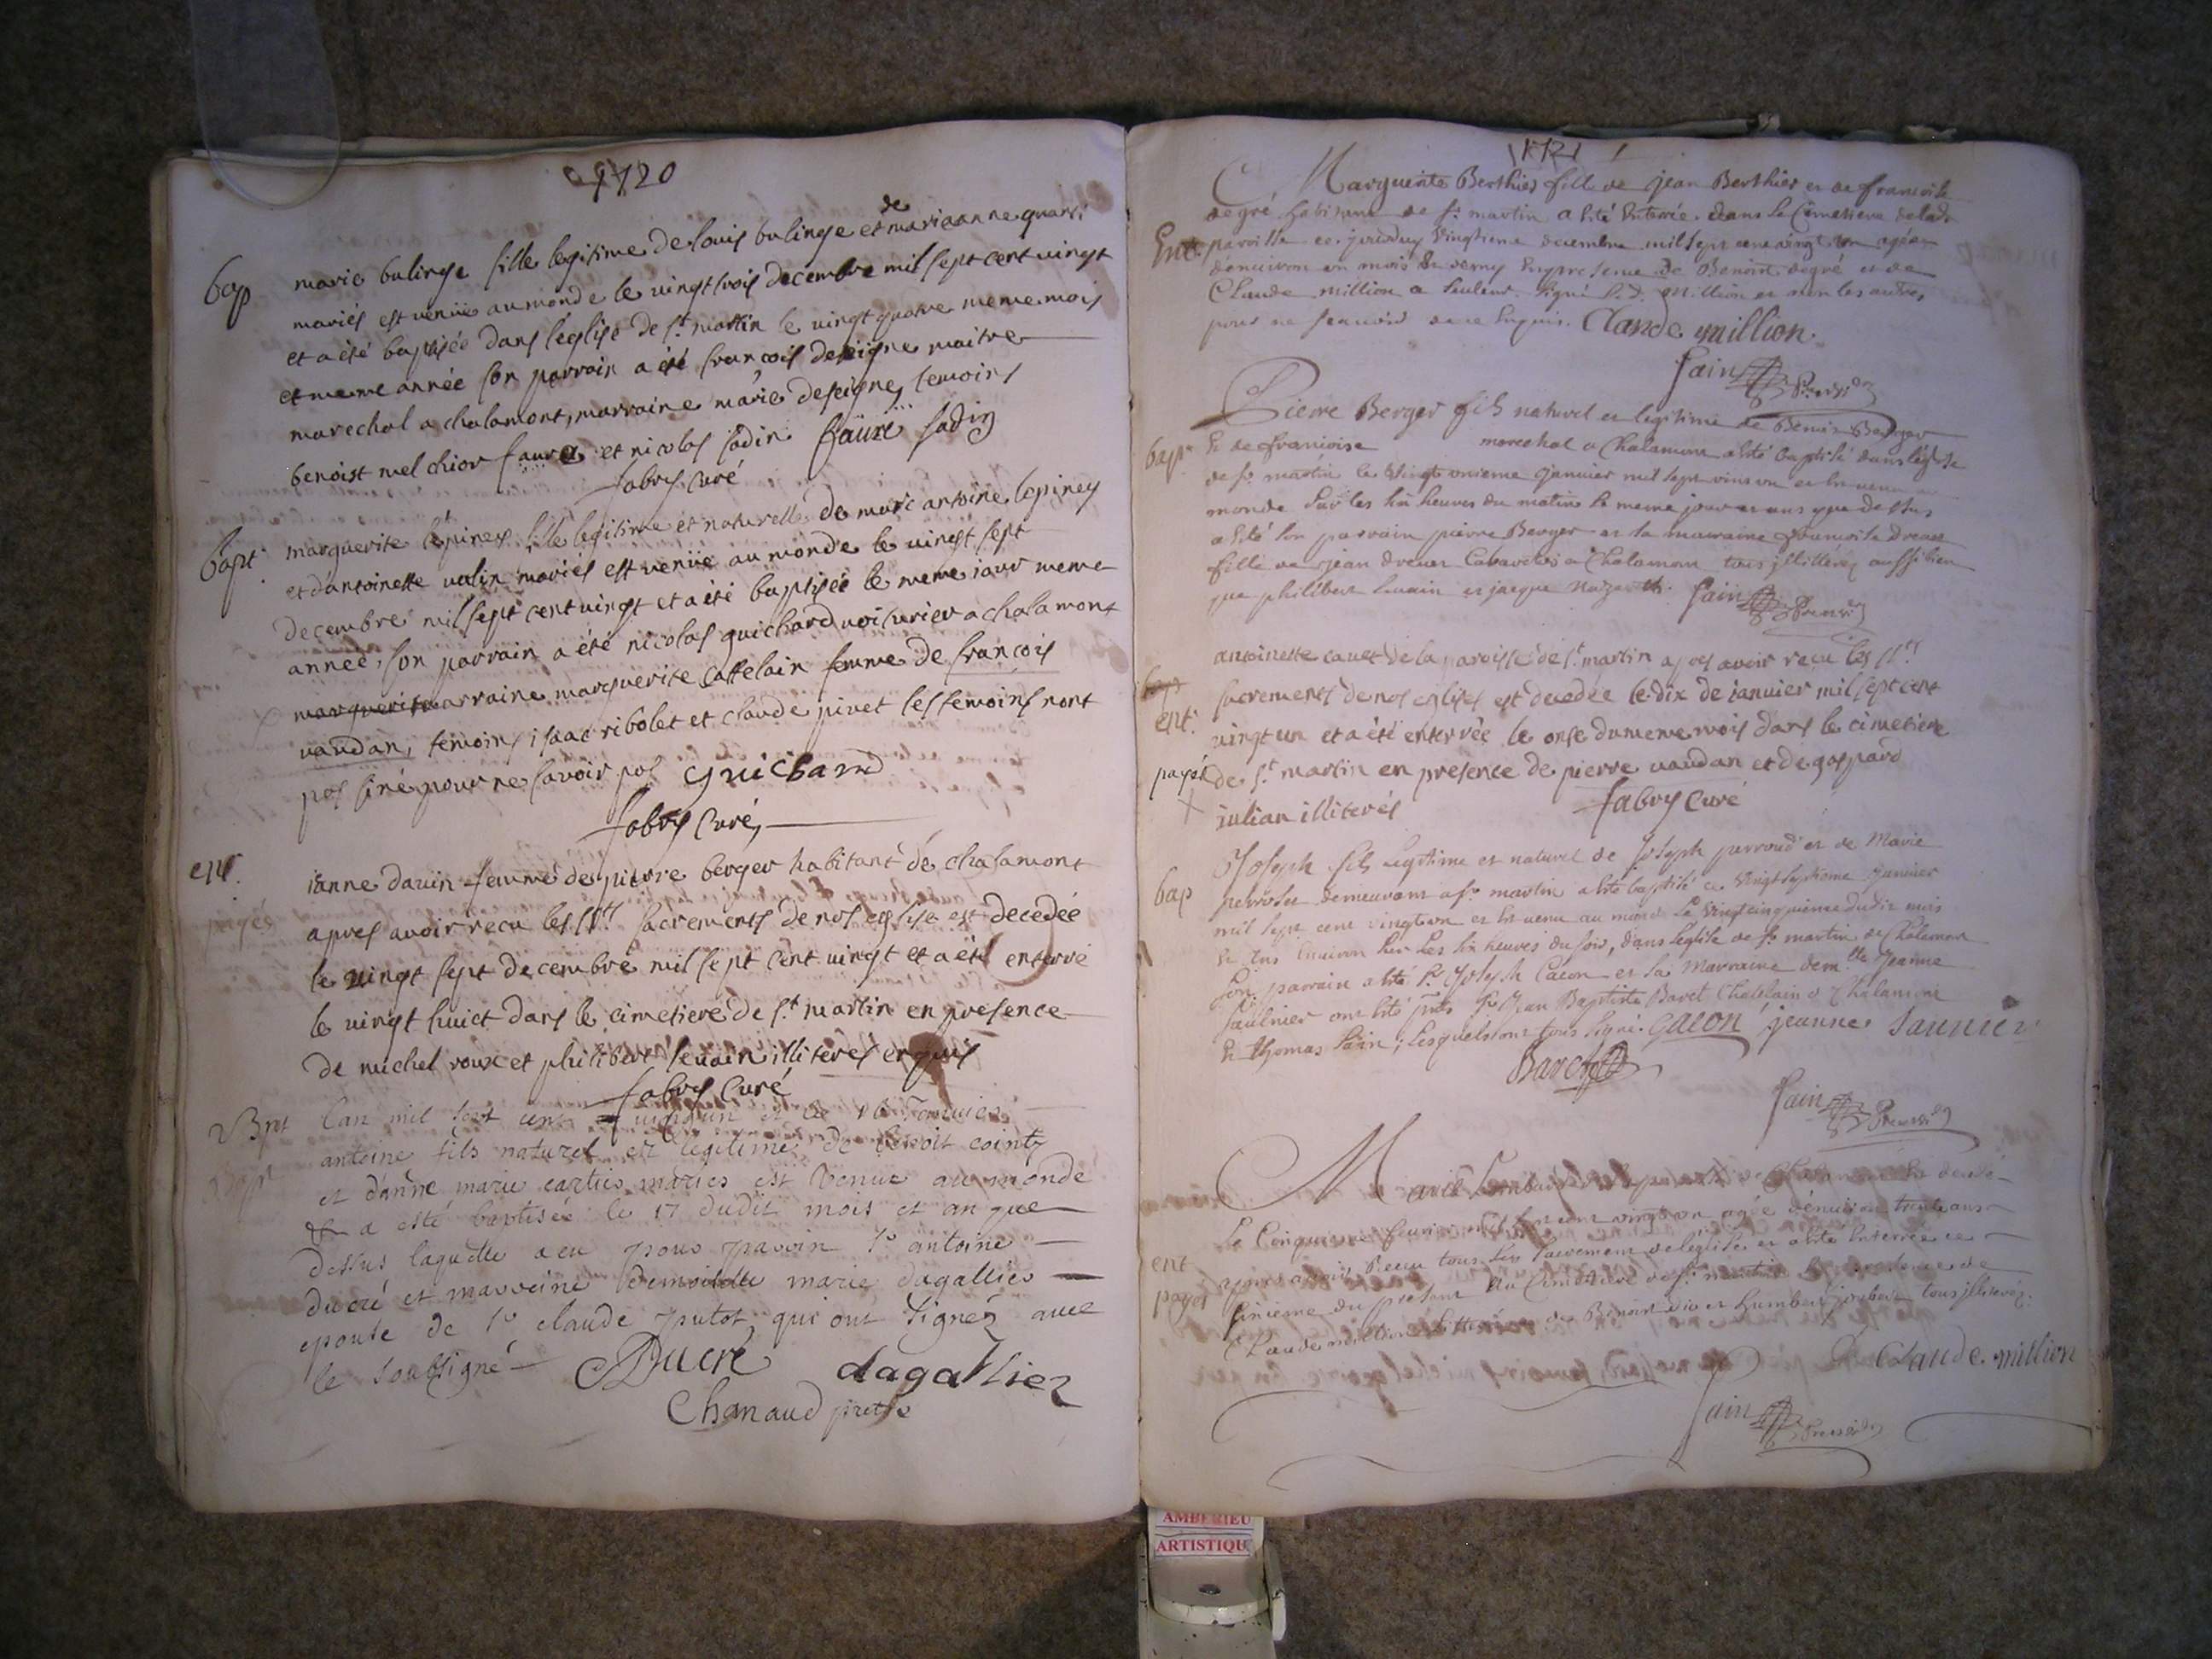 1720
bap
marie bulinge fille legitime de louis bulinge et de marieanne quarri
mariés est venüe au monde le vingt trois decembre mil sept cent vingt
et a été baptisée dans l'eglise de st martin le vingt quatre meme mois
et meme année son parrain a été françois deseigne maitre
marechal a chalamont, marraine marie deseigne, temoins
benoist melchior faure et nicolas sadin faure sadin
fabry curé
bapt
marguerite lépiney fille legitime et naturelle de marc antoine lepiney
et d'antoinette vulin mariés est venüe au monde le vingt sept
decembre mil sept cent vingt et a été baptisée le meme jour meme
année, son parrain a été nicolas guichard voiturier a chalamont
marraine marguerite cattelain femme de françois
vaudan, temoins isaac ribolet et claude pivet les temoins nont
pas siné pour ne savoir pas guichard
fabry curé
ent.
payés
ianne davin femme de pierre berger habitant de chalamont
apres avoir recu les sts sacrements de nos eglise est decedée
le vingt sept decembre mil sept cent vingt et a été enterré
le vingt huict dans le cimetiere de st martin en presence
de michel roux et philibert levain illiteres enquis
fabry curé
Bapt
lan mil sept cent vingt un et le 16 Janvier
antoine fils naturel et legitime de benoit cointy
et d'anne marie cartier mariés est venue au monde
et a esté baptisée le 17 dudit mois et an que
dessus laquelle a eu pour parrin sr antoine
ducré et marreine demoiselle marie dagallier
epouse de sr claude putot, qui ont signéz avec
le soubsigné Ducré dagallier
Chanaud pretre
1721
Ent
Marguerite Berthier fille de Jean Berthier et de francoise
degré habitant de st martin a été enterrée dans le Cimetiere de lade
paroisse ce jourd'huy vingtieme decembre mil sept cent vingt un agée
d'environ un mois et demy en presence de Benoist degré et de
Claude million a signé
pour ne scavoir de ce enquis. Claude million
Sain
bapt
Pierre Berger fils naturel et legitime de Benoist Berger
et de francoise marechal a Chalamont a été baptisé dans l'église
de st martin le vingt onzieme janvier mil sept vint un et est venu au
monde sur les six heures du matin le meme jour et ans que dessus
a été son parrain pierre Berger et la marraine francoise drevet
fille de jean drevet Cabaretier a Chalamont tous illitéréz aussi bien
que philibert levain et jacque nazareth. Sain
ent.
payés
antoinette cauet de la paroisse de st martin apres avoir recu les sts
sacrements de nos eglises est decedée le dix de janvier mil sept cent
vingt un et a été enterrée le onse du meme mois dans le cimetiere
de st martin en presence de pierre vaudan et de gaspard
iulian illiterés fabry curé
bap
Joseph fils legitime et naturel de Joseph perroud et de Marie
demeurant a st martin a été baptisé ce vingt septieme janvier
mil sept cent vingt un et est venu au monde le vingt cinquieme dudit mois
et ans environ sur les six heures du soir, dans l'eglise de st martin de Chalamont
son parrain a été sr Joseph Cacon et la Marraine demlle Jeanne
Saulnier ont été pnts sr Jean Baptiste Baret Chatelain a Chalamont
et thomas Sain, lesquels ont tous signé. Gacon jeanne saunier
Baret
Sain
ent
payés
Marie Lombard de la paroisse de Chalamont est decedée
Le Cinquieme fevrier mil sept cent vingt un agée d'environ trente ans
apres avoir Receu tous les Sacrement de léglise et a été enterrée ce
sixieme du present au Cimetiere de st martin en presence de
Claude million de Benoist et humbert tous illiteréz.
Claude million
Sain
AMBERIEU
ARTISTIQU